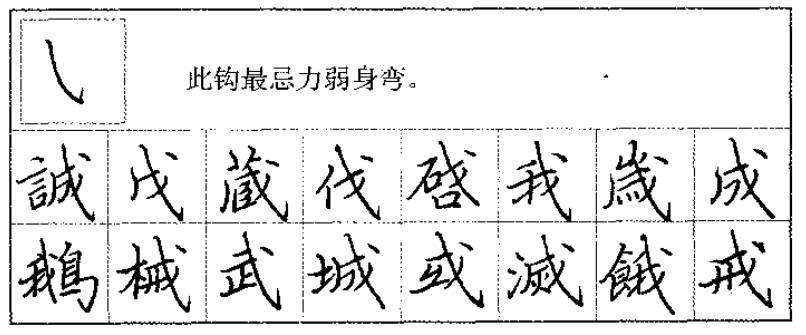 此钩最忌力弱身弯。
誠戊蔵伐我嵗成
鵝械武城或滅餓戒